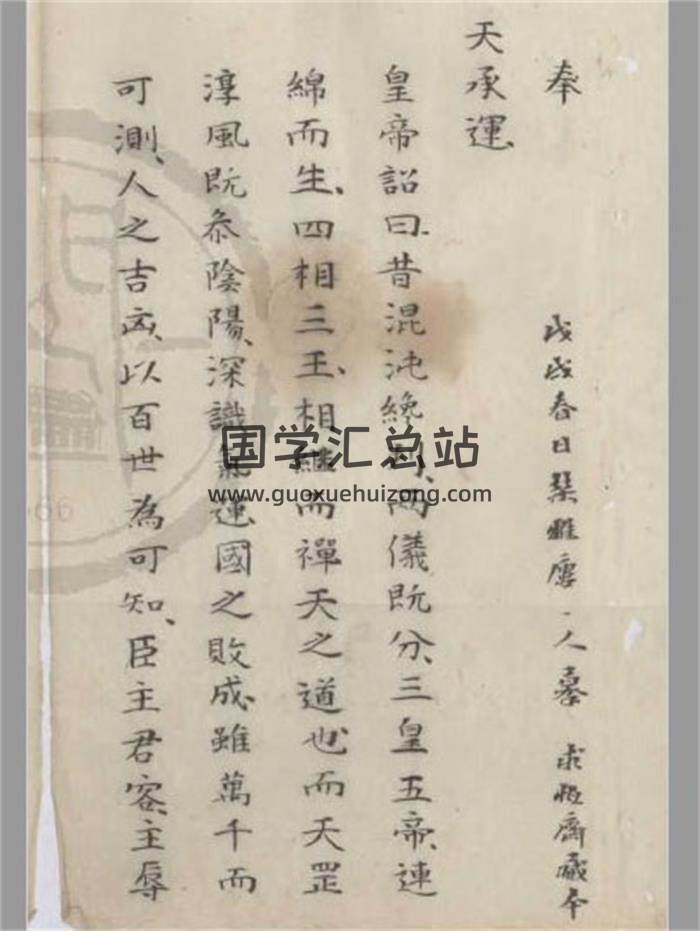 奉
戊戌春日集雅廔、人摹 求恒齋藏本
天承運、
皇帝詔曰、昔混沌纔判、兩儀既分、三皇五帝、連
綿而生、四相三王、相繼而禪天之道也、而天罡
淳風既叅陰陽、深識氣運國之敗成、雖萬千而
可測、人之吉凶、以百世為可知、臣主君容、主辱
国学汇总站
www.guoxuehuizong.com